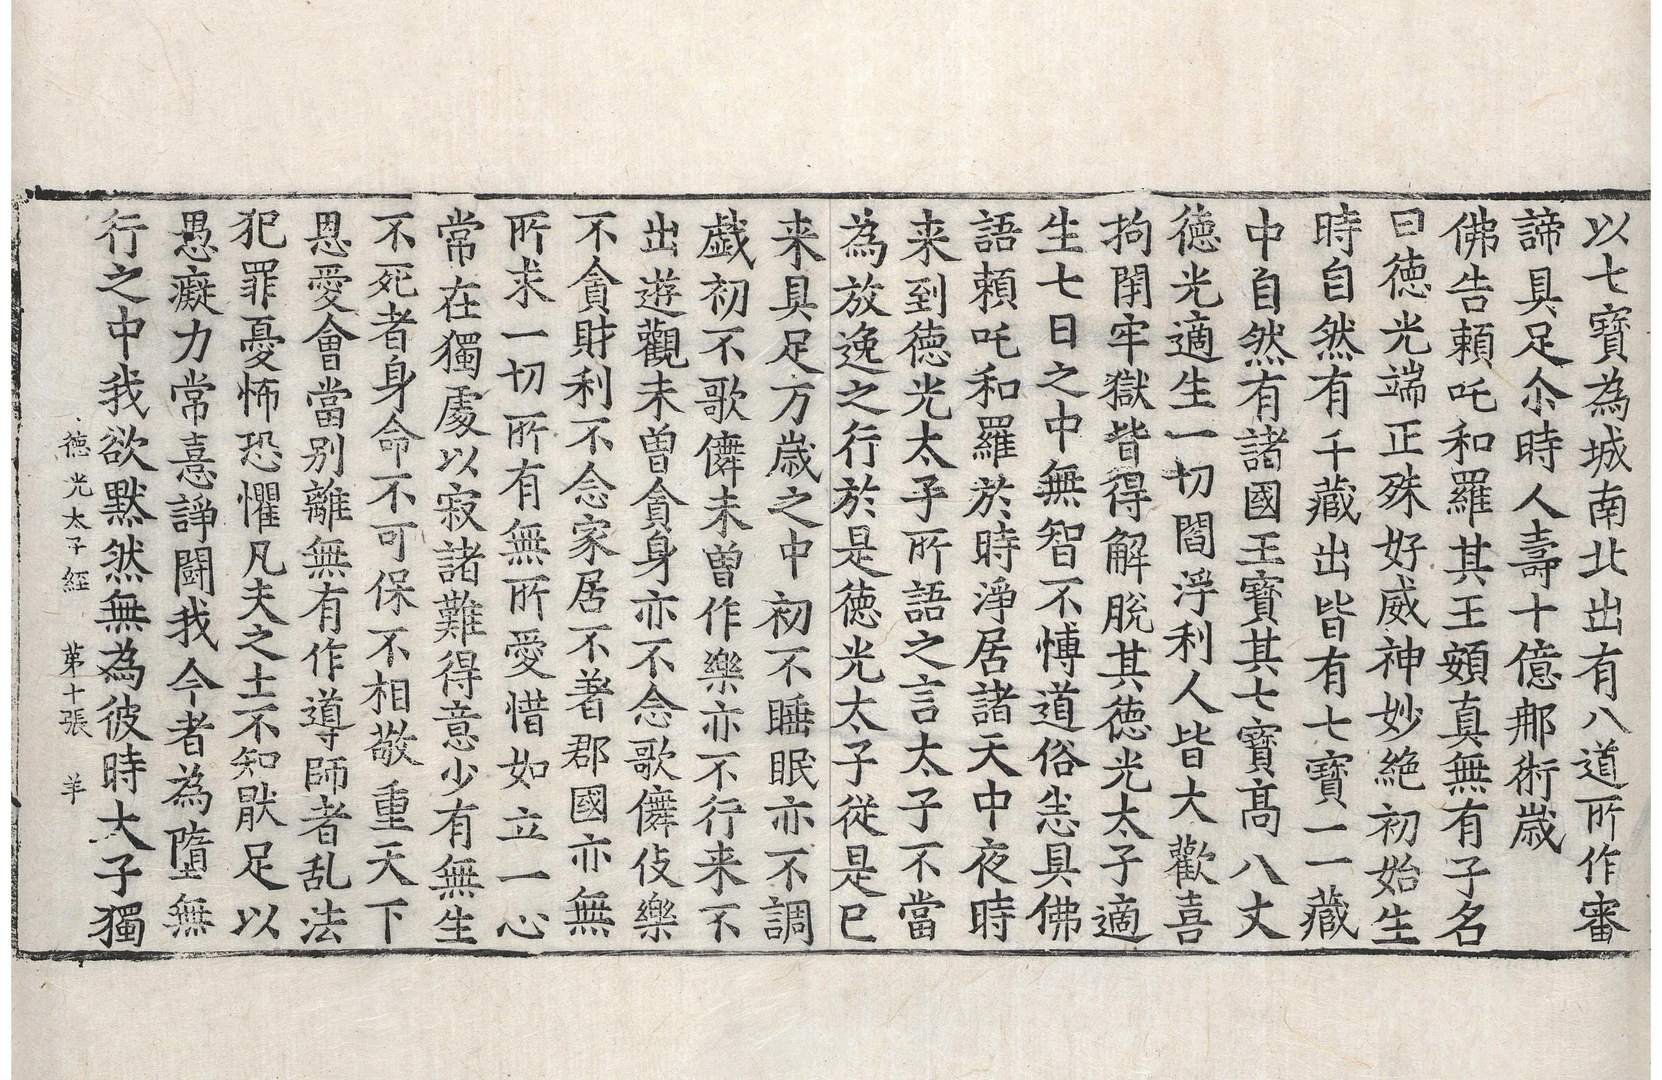 以七寶為城南北出有八道所作審
諦具足尒時人壽十億郍術歳
佛告頼吒和羅其王頞真無有子名
曰徳光端正殊好威神妙絶初始生
時自然有千藏出皆有七寶一一藏
中自然有諸國王寶其七寶高八丈
徳光適生一切閻浮利人皆大歡喜
拘閉牢獄皆得解脫其徳光太子適
生七日之中無智不愽道俗悉具佛
語頼吒和羅於時淨居諸天中夜時
来到徳光太子所語之言太子不當
為放逸之行於是徳光太子従是已
来具足万歳之中初不睡眠亦不調
戯初不歌儛未曽作樂亦不行来不
出遊觀未曽貪身亦不念歌儛伎樂
不貪財利不念家居不著郡國亦無
所求一切所有無所愛惜如立一心
常在獨處以寂諸難得意少有無生
不死者身命不可保不相敬重天下
恩愛會當別離無有作導師者乱法
犯罪憂怖恐懼凡夫之士不知猒足以
愚癡力常憙諍鬪我今者為墮無
行之中我欲默然無為彼時太子獨
徳光太子經 第十張 羊